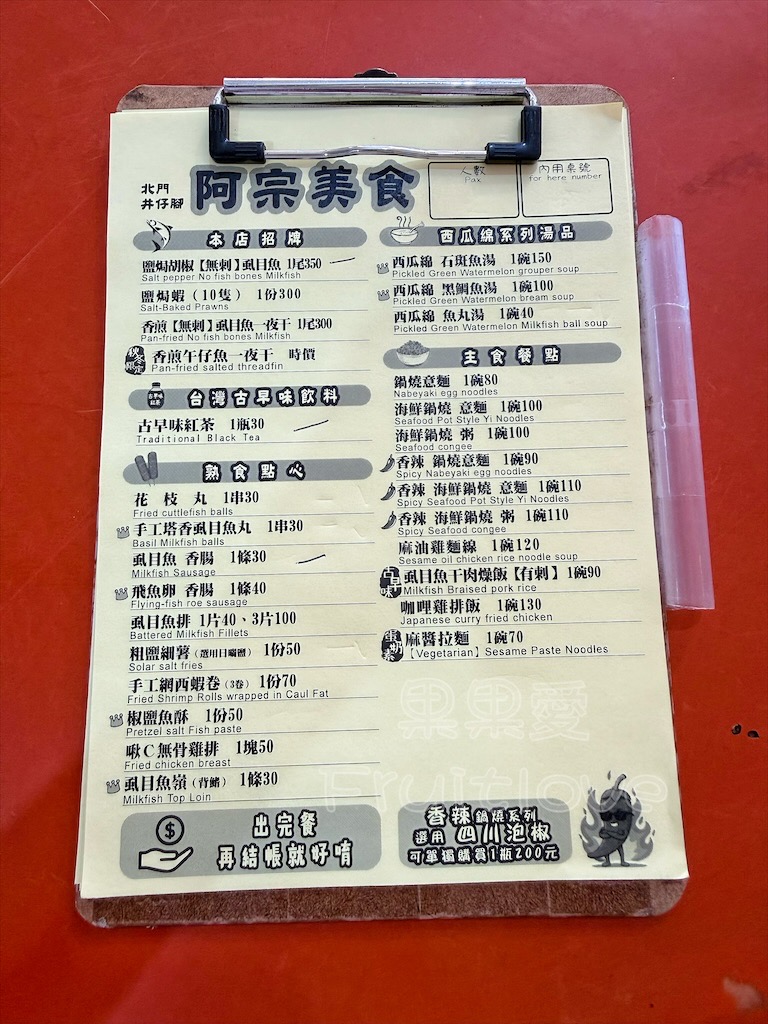 北門
井仔腳
阿宗美食
人數
Pax
內用桌號
for here number
本店招牌
鹽焗胡椒【無刺】虱目魚 1尾350
Salt pepper No fish bones Milkfish
鹽焗蝦（10隻） 1份300
Salt-Baked Prawns
香煎【無刺】虱目魚一夜干 1尾300
Pan-fried No fish bones Milkfish
香煎午仔魚一夜干 時價
Pan-fried salted threadfin
古早味紅茶
台灣古早味飲料
古早味紅茶 1瓶30
Traditional Black Tea
熟食點心
花枝丸 1串30
Fried cuttlefish balls
手工塔香虱目魚丸 1串30
Basil Milkfish balls
虱目魚 香腸 1條30
Milkfish Sausage
飛魚卵 香腸 1條40
Flying-fish roe sausage
虱目魚排 1片40、3片100
Battered Milkfish Fillets
粗鹽細薯（選用日曬鹽） 1份50
Solar salt fries
手工網西蝦卷（3卷） 1份70
Fried Shrimp Rolls wrapped in Caul Fat
椒鹽魚酥 1份50
Pretzel salt Fish paste
啾C無骨雞排 1塊50
Fried chicken breast
虱目魚嶺（背鰭） 1條30
Milkfish Top Loin
$
出完餐
再結帳就好唷
西瓜綿系列湯品
西瓜綿 石斑魚湯 1碗150
Pickled Green Watermelon grouper soup
西瓜綿 黑鯛魚湯 1碗100
Pickled Green Watermelon bream soup
西瓜綿 魚丸湯 1碗40
Pickled Green Watermelon Milkfish ball soup
主食餐點
鍋燒意麵 1碗80
Nabeyaki egg noodles
海鮮鍋燒 意麵 1碗100
Seafood Pot Style Yi Noodles
海鮮鍋燒 粥 1碗100
Seafood congee
香辣 鍋燒意麵 1碗90
Spicy Nabeyaki egg noodles
香辣 海鮮鍋燒 意麵 1碗110
Spicy Seafood Pot Style Yi Noodles
香辣 海鮮鍋燒 粥 1碗110
Spicy Seafood congee
麻油雞麵線 1碗120
Sesame oil chicken rice noodle soup
古早味 虱目魚干肉燥飯【有刺】1碗90
Milkfish Braised pork rice
咖哩雞排飯 1碗130
Japanese curry fried chicken
蛋奶素 麻醬拉麵 1碗70
【Vegetarian】Sesame Paste Noodles
果果愛
Fruitlove
香辣鍋燒系列
選用 四川泡椒
可單獨購買1瓶200元